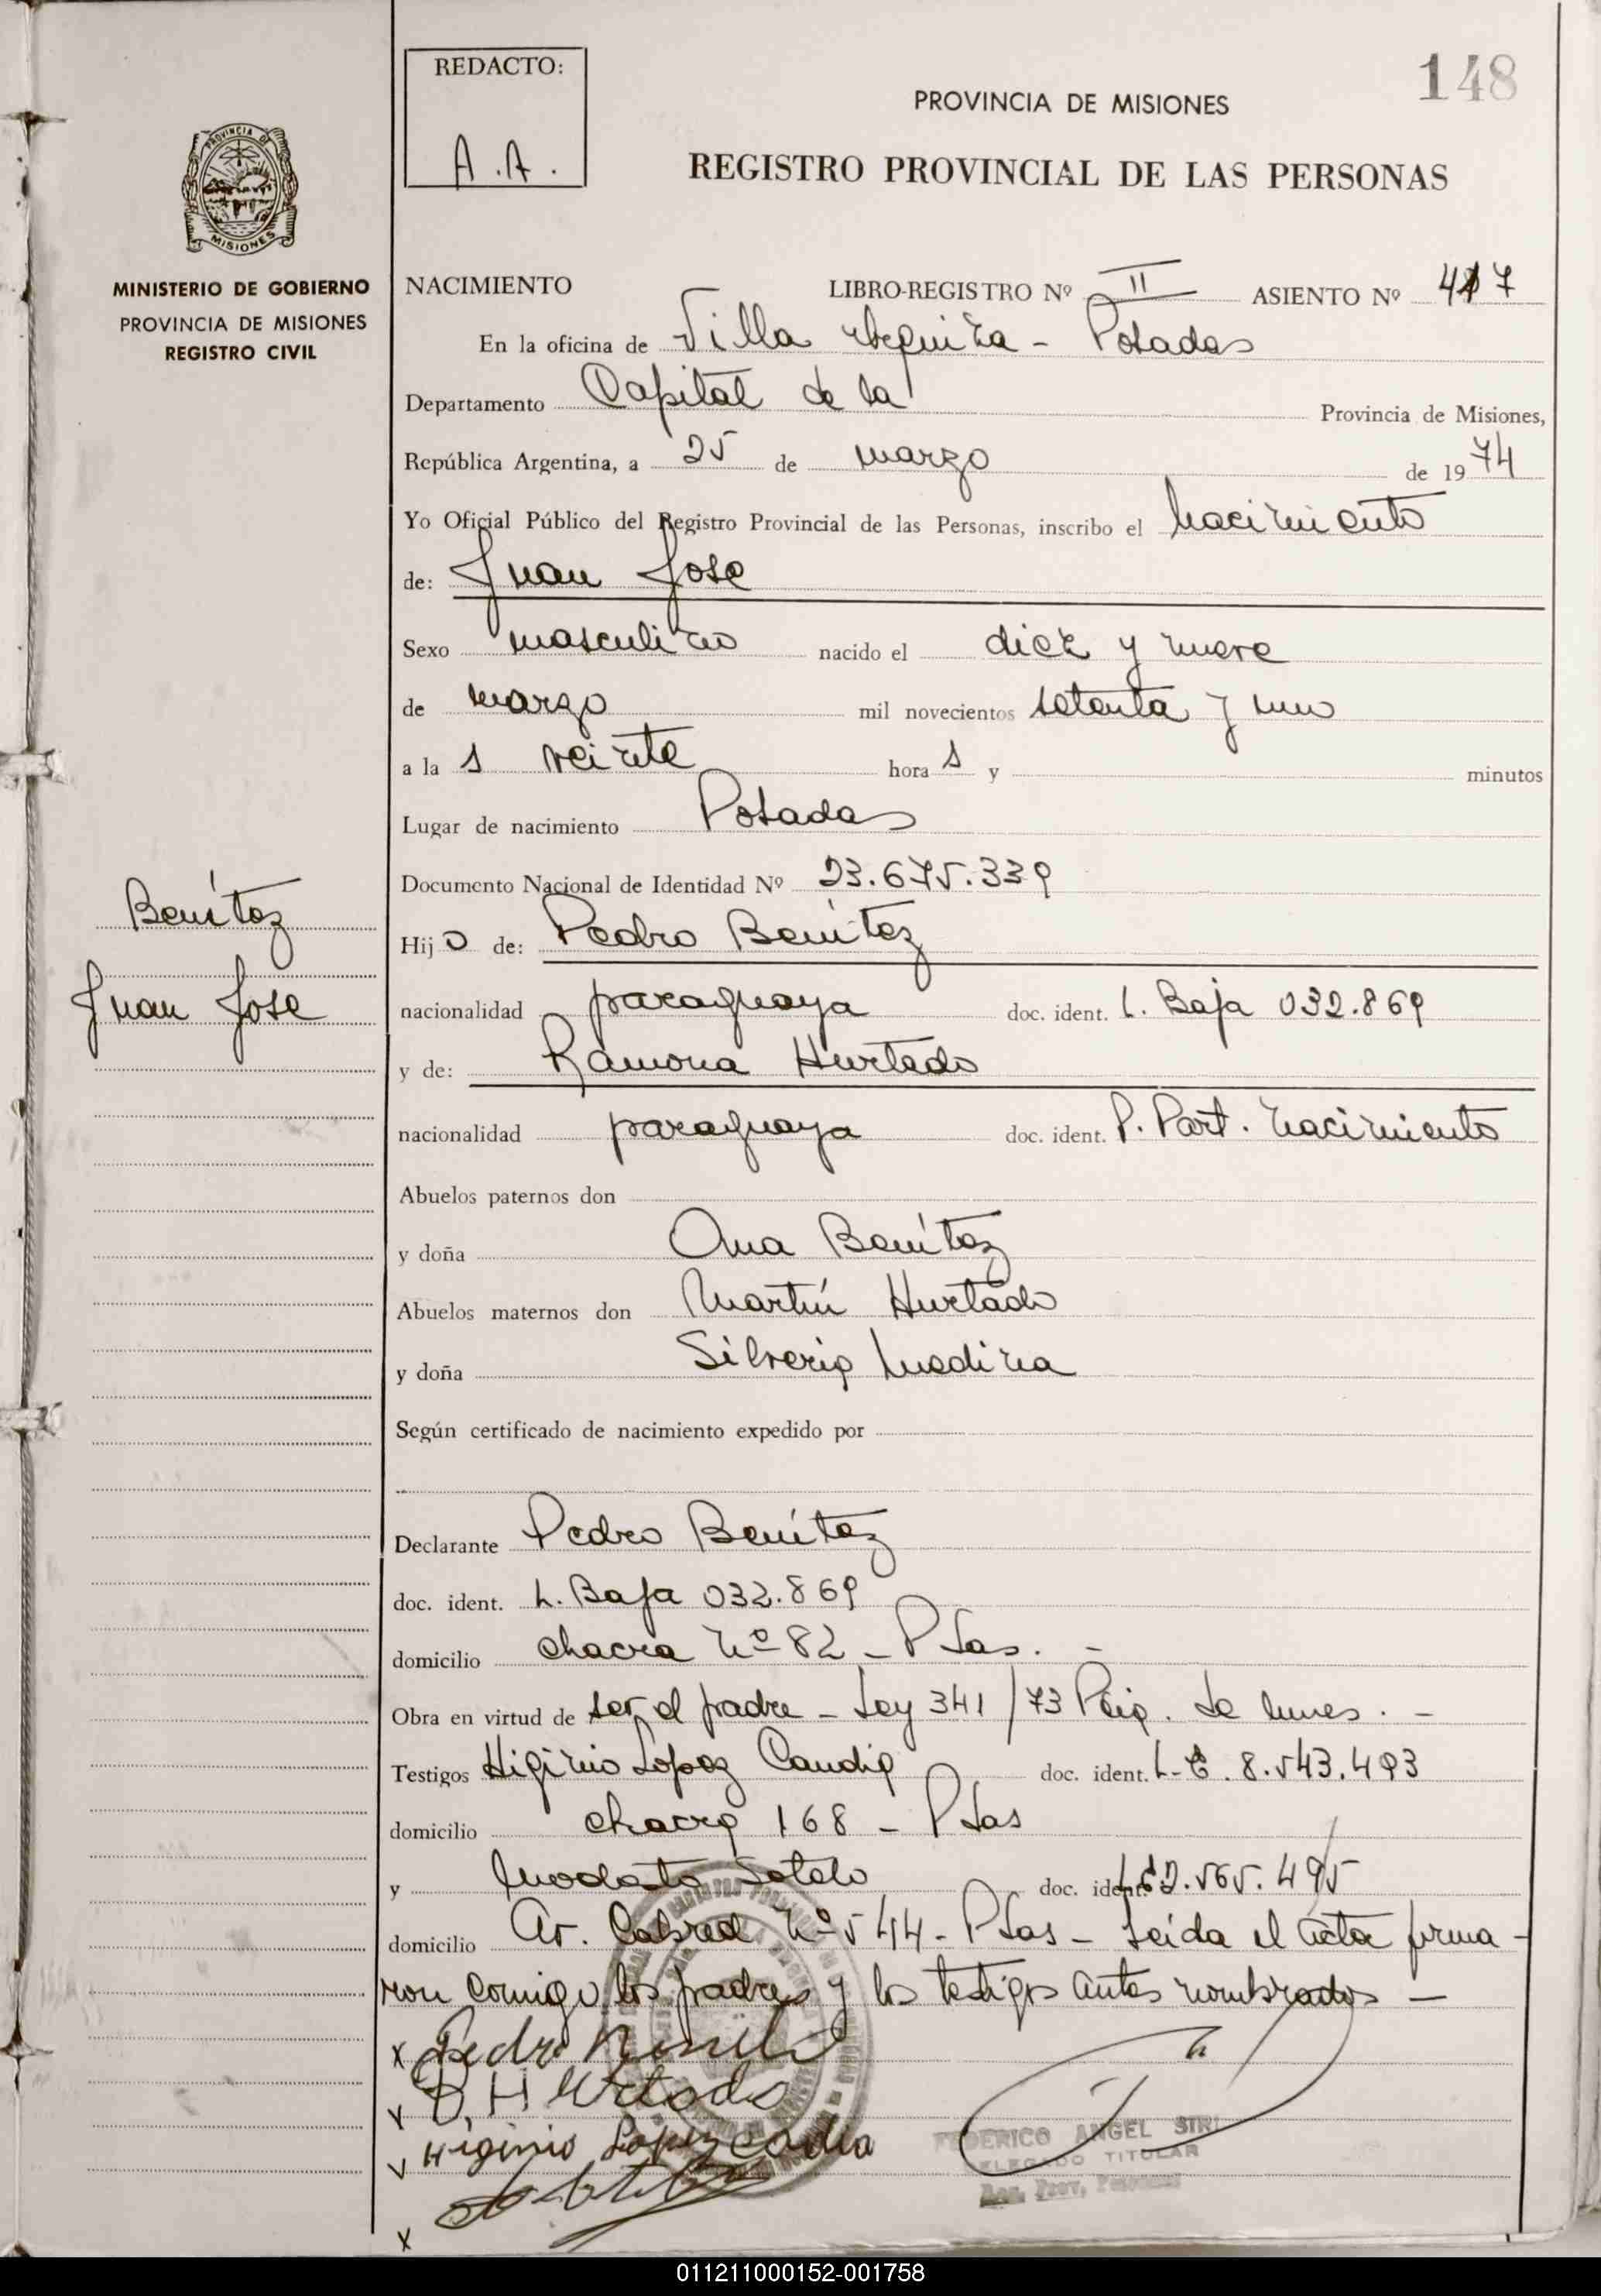 148
REDACTO:
A.A.
PROVINCIA DE MISIONES
REGISTRO PROVINCIAL DE LAS PERSONAS
PROVINCIA DE
MISIONES
MINISTERIO DE GOBIERNO
PROVINCIA DE MISIONES
REGISTRO CIVIL
NACIMIENTO LIBRO-REGISTRO Nº II ASIENTO Nº 417
En la oficina de Villa Urquiza - Posadas
Departamento Capital de la Provincia de Misiones,
República Argentina, a 25 de marzo de 1974
Yo Oficial Público del Registro Provincial de las Personas, inscribo el nacimiento
de: Juan Jose
Sexo masculino nacido el diez y nueve
de marzo mil novecientos setenta y uno
a la s veinte hora s y minutos
Lugar de nacimiento Posadas
Documento Nacional de Identidad Nº 23.675.339
Benítez
Juan Jose
Hijo de: Pedro Benítez
nacionalidad paraguaya doc. ident. L. Baja 032.869
y de: Ramona Hurtado
nacionalidad paraguaya doc. ident. P. Part. nacimiento
Abuelos paternos don
y doña Ana Benítez
Abuelos maternos don Martín Hurtado
y doña Silveria Medina
Según certificado de nacimiento expedido por
Declarante Pedro Benítez
doc. ident. L. Baja 032.869
domicilio chacra Nº 82 - Psas. -
Obra en virtud de ser el padre - Ley 341/73 . -
Testigos Higinio Lopez Candia doc. ident. L.E. 8.543.493
domicilio chacra 168 - Psas
y Modesto Sotelo doc. ident. 565.495
domicilio Av. Cabred Nº 544 - Psas - Leida el acta firma-
ron conmigo los padres y los testigos antes nombrados -
x Pedro
Hurtado
Higinio Lopez Candia
x
FEDERICO ANGEL
DELEGADO TITULAR
Reg. Prov.
011211000152-001758